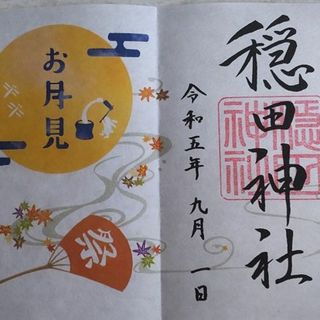 穏田神社
令和五年 九月 一日
お月見
祭
穏田
神社